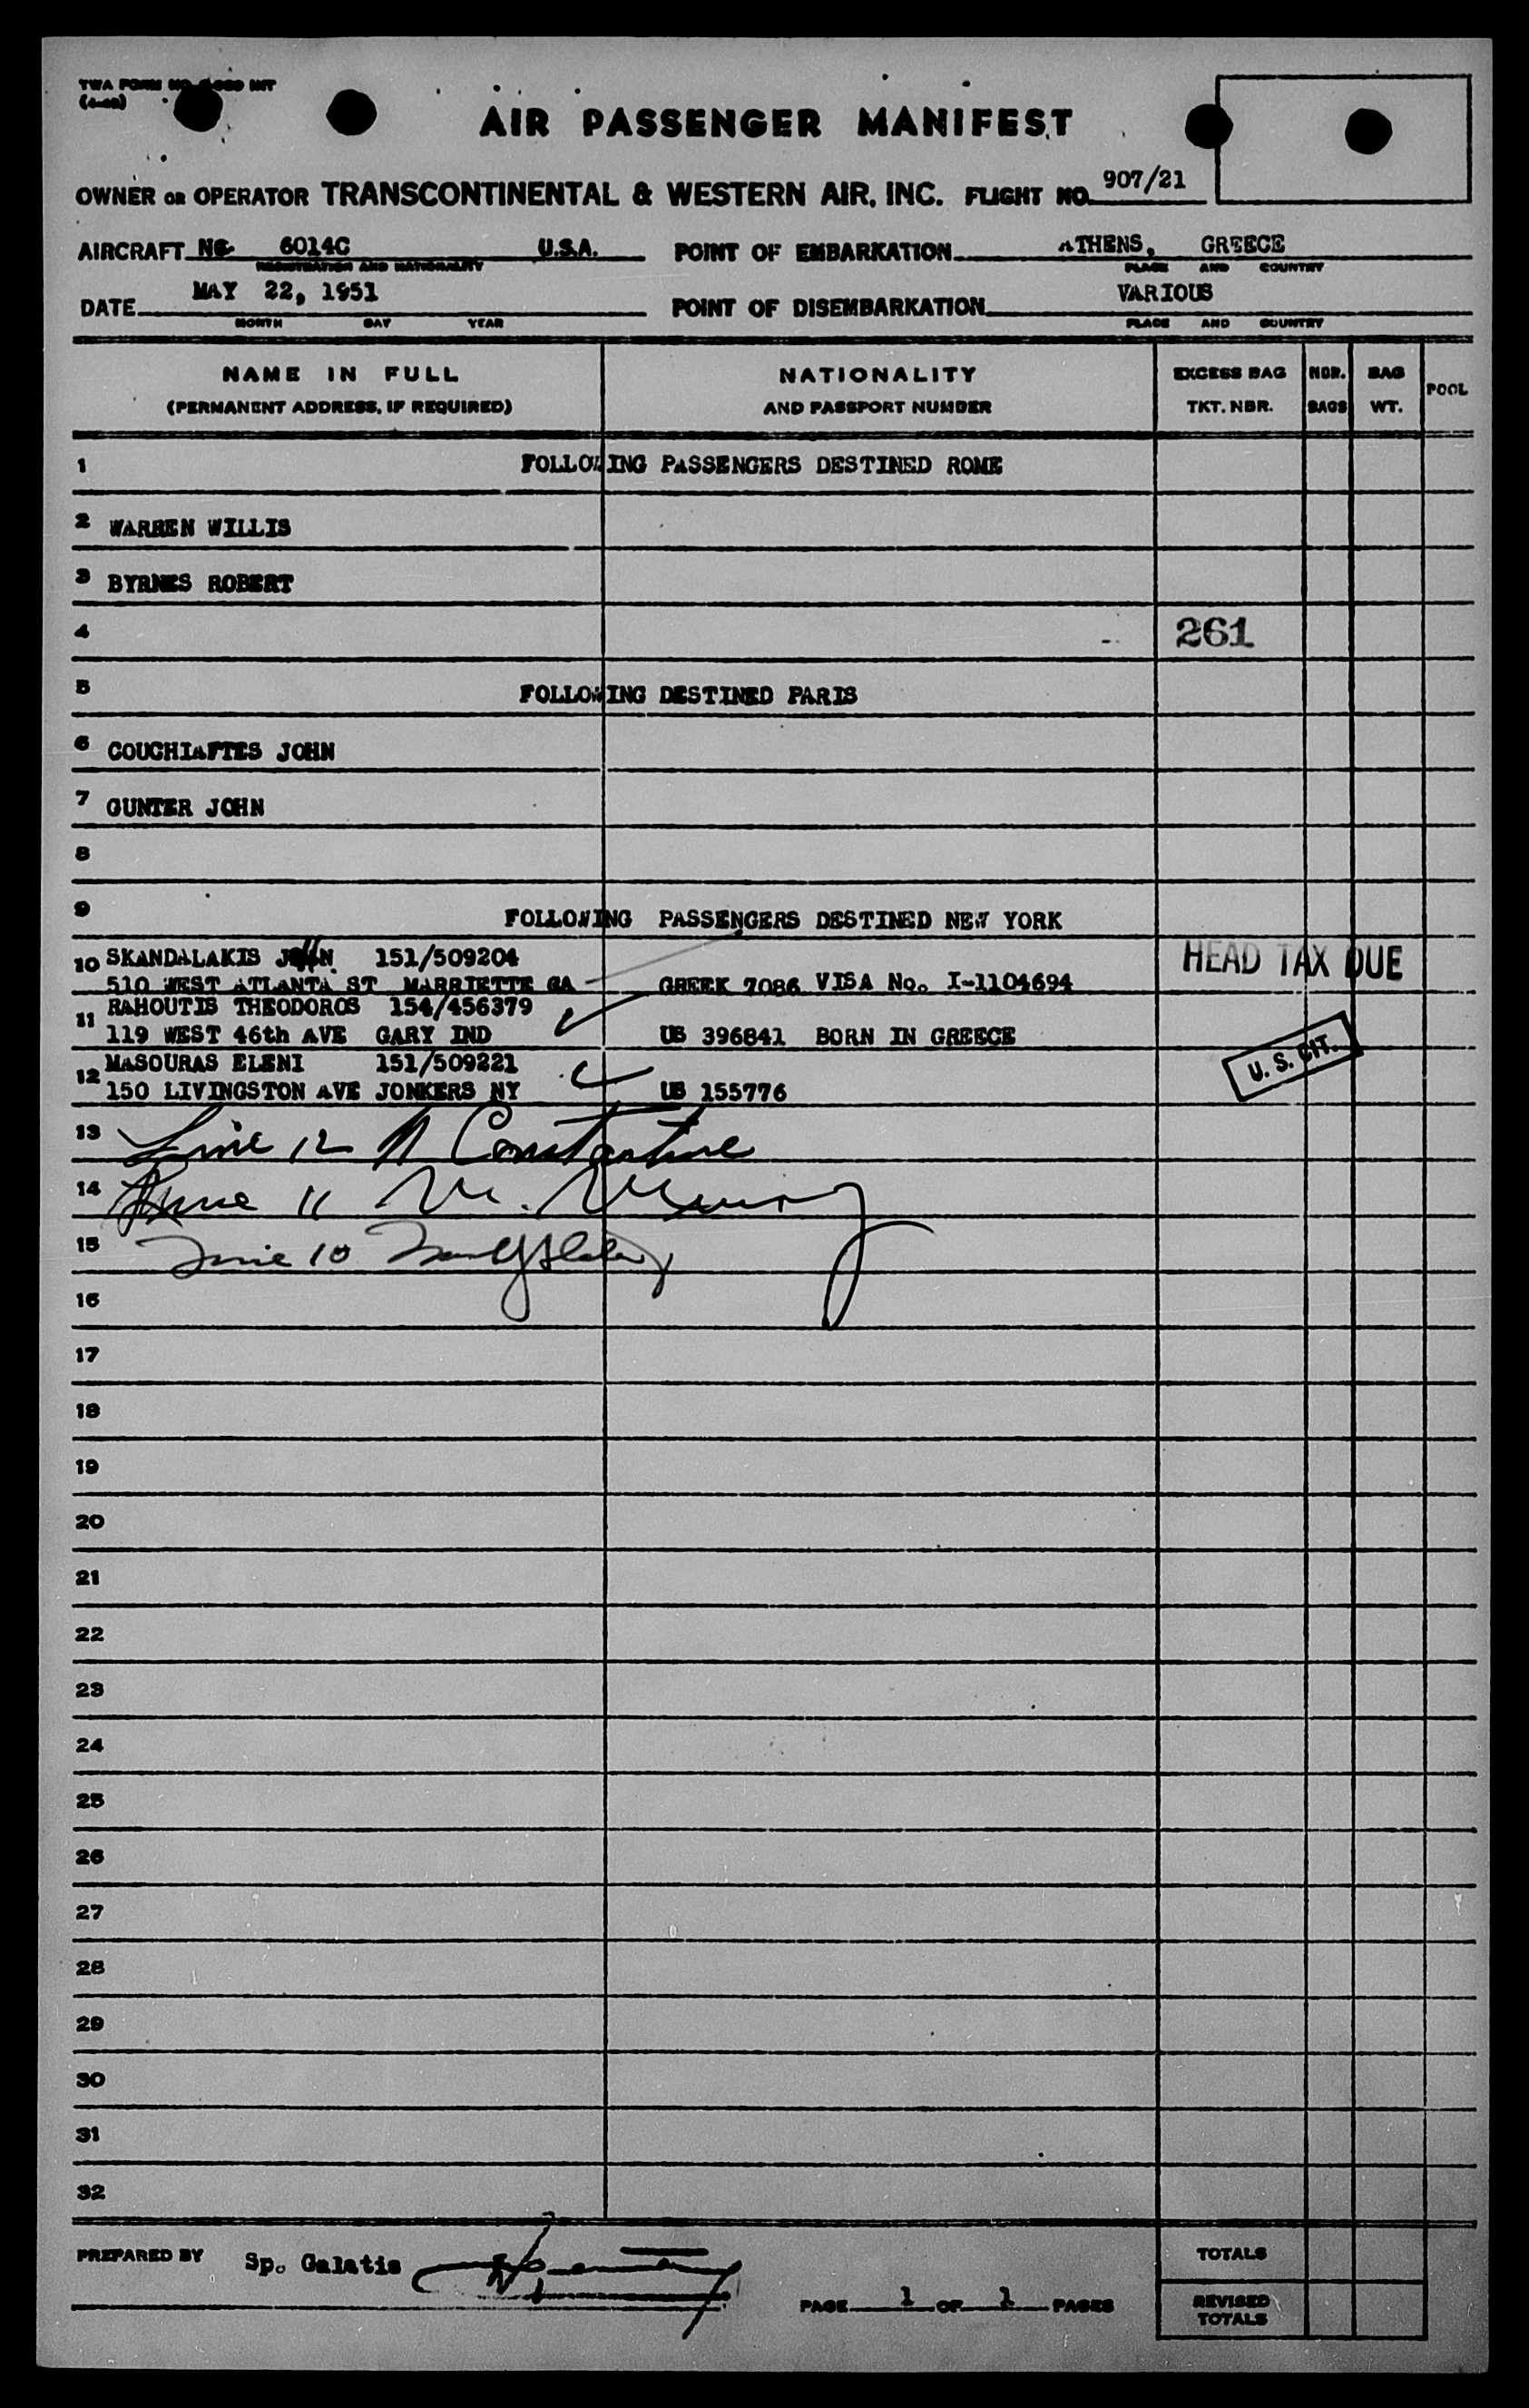 TWA FORM NO
AIR PASSENGER MANIFEST
OWNER OR OPERATOR TRANSCONTINENTAL & WESTERN AIR, INC. FLIGHT NO. 907/21
AIRCRAFT NC 6014C U.S.A. POINT OF EMBARKATION ATHENS, GREECE
REGISTRATION AND NATIONALITY PLACE AND COUNTRY
DATE MAY 22, 1951 POINT OF DISEMBARKATION VARIOUS
MONTH DAY YEAR PLACE AND COUNTRY
NAME IN FULL NATIONALITY EXCESS BAG NBR. BAG POOL
(PERMANENT ADDRESS, IF REQUIRED) AND PASSPORT NUMBER TKT. NBR. BAGS WT.
1 FOLLOWING PASSENGERS DESTINED ROME
2 WARREN WILLIS
3 BYRNES ROBERT
4 261
5 FOLLOWING DESTINED PARIS
6 COUCHIAFTES JOHN
7 GUNTER JOHN
8
9 FOLLOWING PASSENGERS DESTINED NEW YORK
10 SKANDALAKIS JOHN 151/509204 HEAD TAX DUE
510 WEST ATLANTA ST MARRIETTE GA GREEK 7086 VISA No. I-1104694
11 RAHOUTIS THEODOROS 154/456379
119 WEST 46th AVE GARY IND US 396841 BORN IN GREECE
U. S. CIT.
12 MASOURAS ELENI 151/509221
150 LIVINGSTON AVE JONKERS NY US 155776
13 Line 12 N Constantine
14 Line 11 M. Murray
15 Line 10
16
17
18
19
20
21
22
23
24
25
26
27
28
29
30
31
32
PREPARED BY Sp. Galatis TOTALS
PAGE 1 OF 1 PAGES REVISED
TOTALS